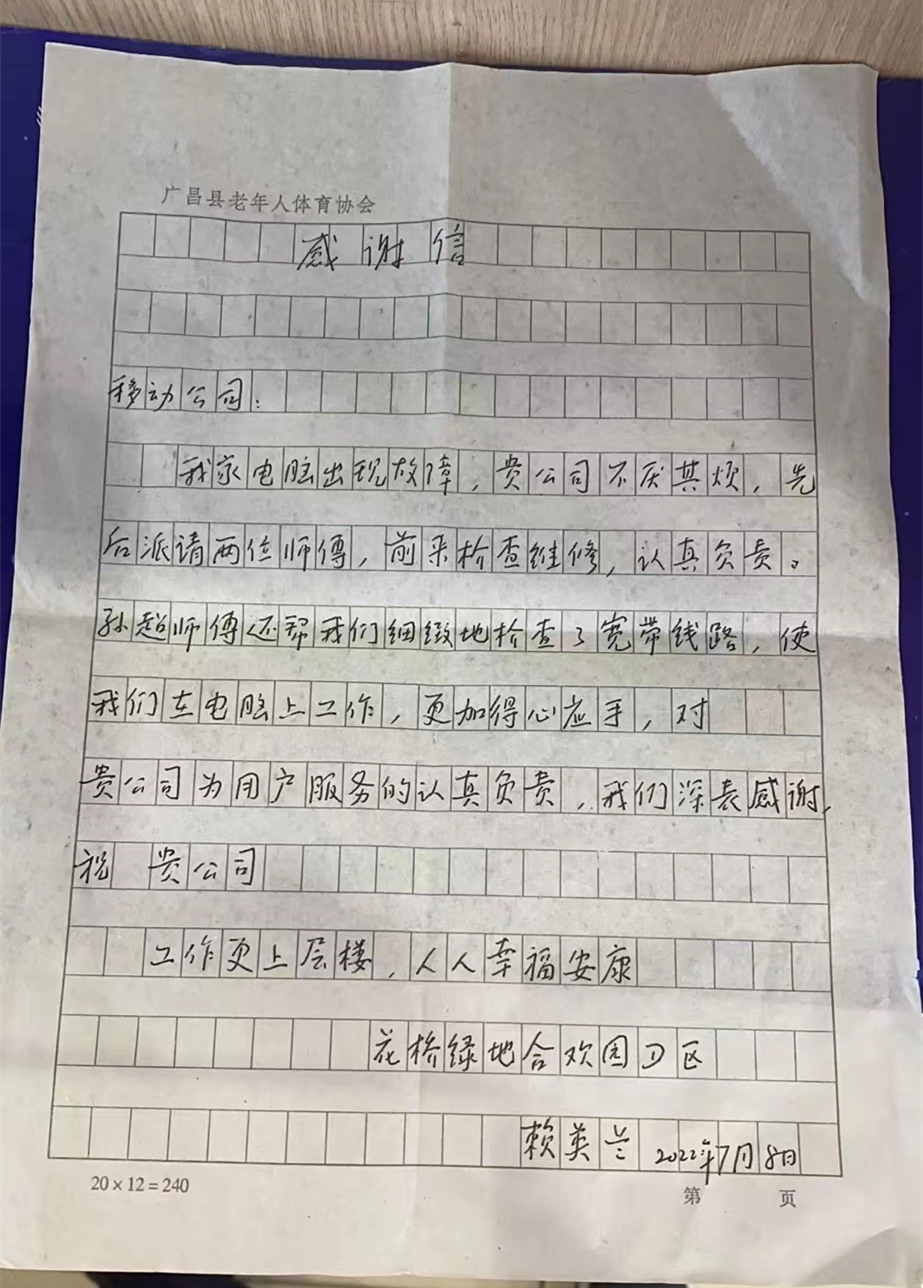 广昌县老年人体育协会
感谢信
移动公司:
我家电脑出现故障,贵公司不厌其烦,先
后派请两位师傅,前来检查维修,认真负责。
孙超师傅还帮我们细致地检查了宽带线路,使
我们在电脑上工作,更加得心应手,对
贵公司为用户服务的认真负责,我们深表感谢,
祝 贵公司
工作更上层楼,人人幸福安康
花桥绿地合欢园D区
赖英兰 2022年7月8日
20×12=240 第 页